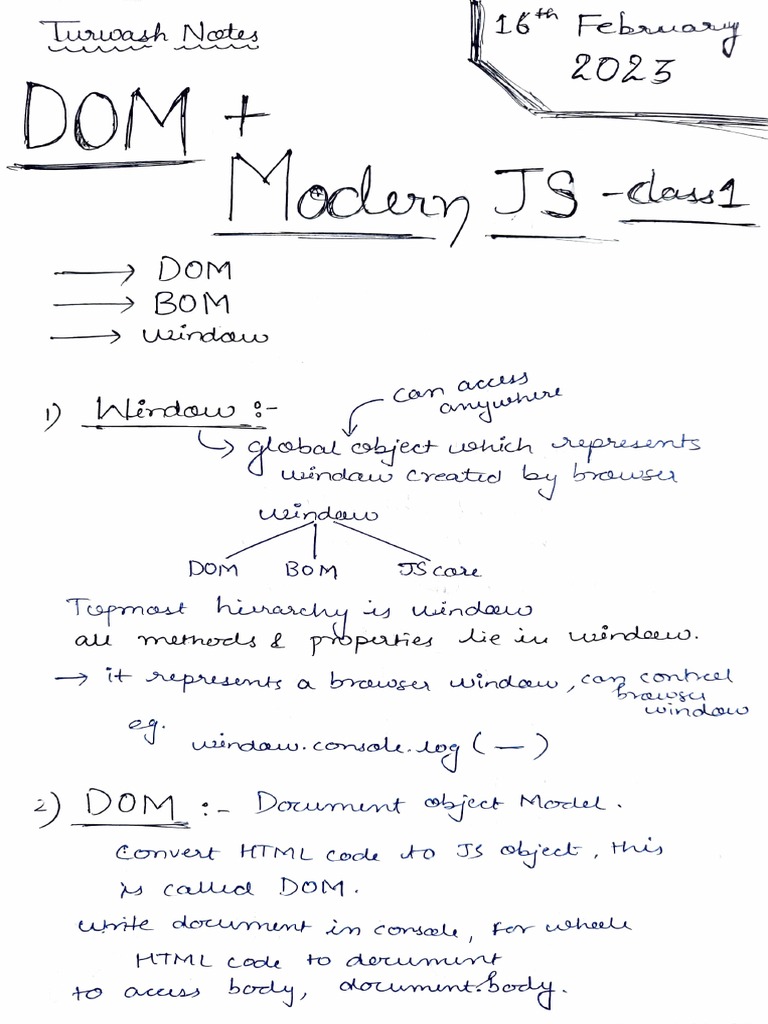 Turwash Notes
16th February
2023
DOM +
Modern JS - class 1
→ DOM
→ BOM
→ window
1) Window :-
can access
anywhere
↳ global object which represents
window created by browser
window
DOM BOM JS core
Topmost hierarchy is window
all methods & properties lie in window.
→ it represents a browser window, can control
browser
window
eg. window.console.log ( — )
2) DOM :- Document object Model.
Convert HTML code to JS object, this
is called DOM.
write document in console, for whole
HTML code to document
to access body, document.body.